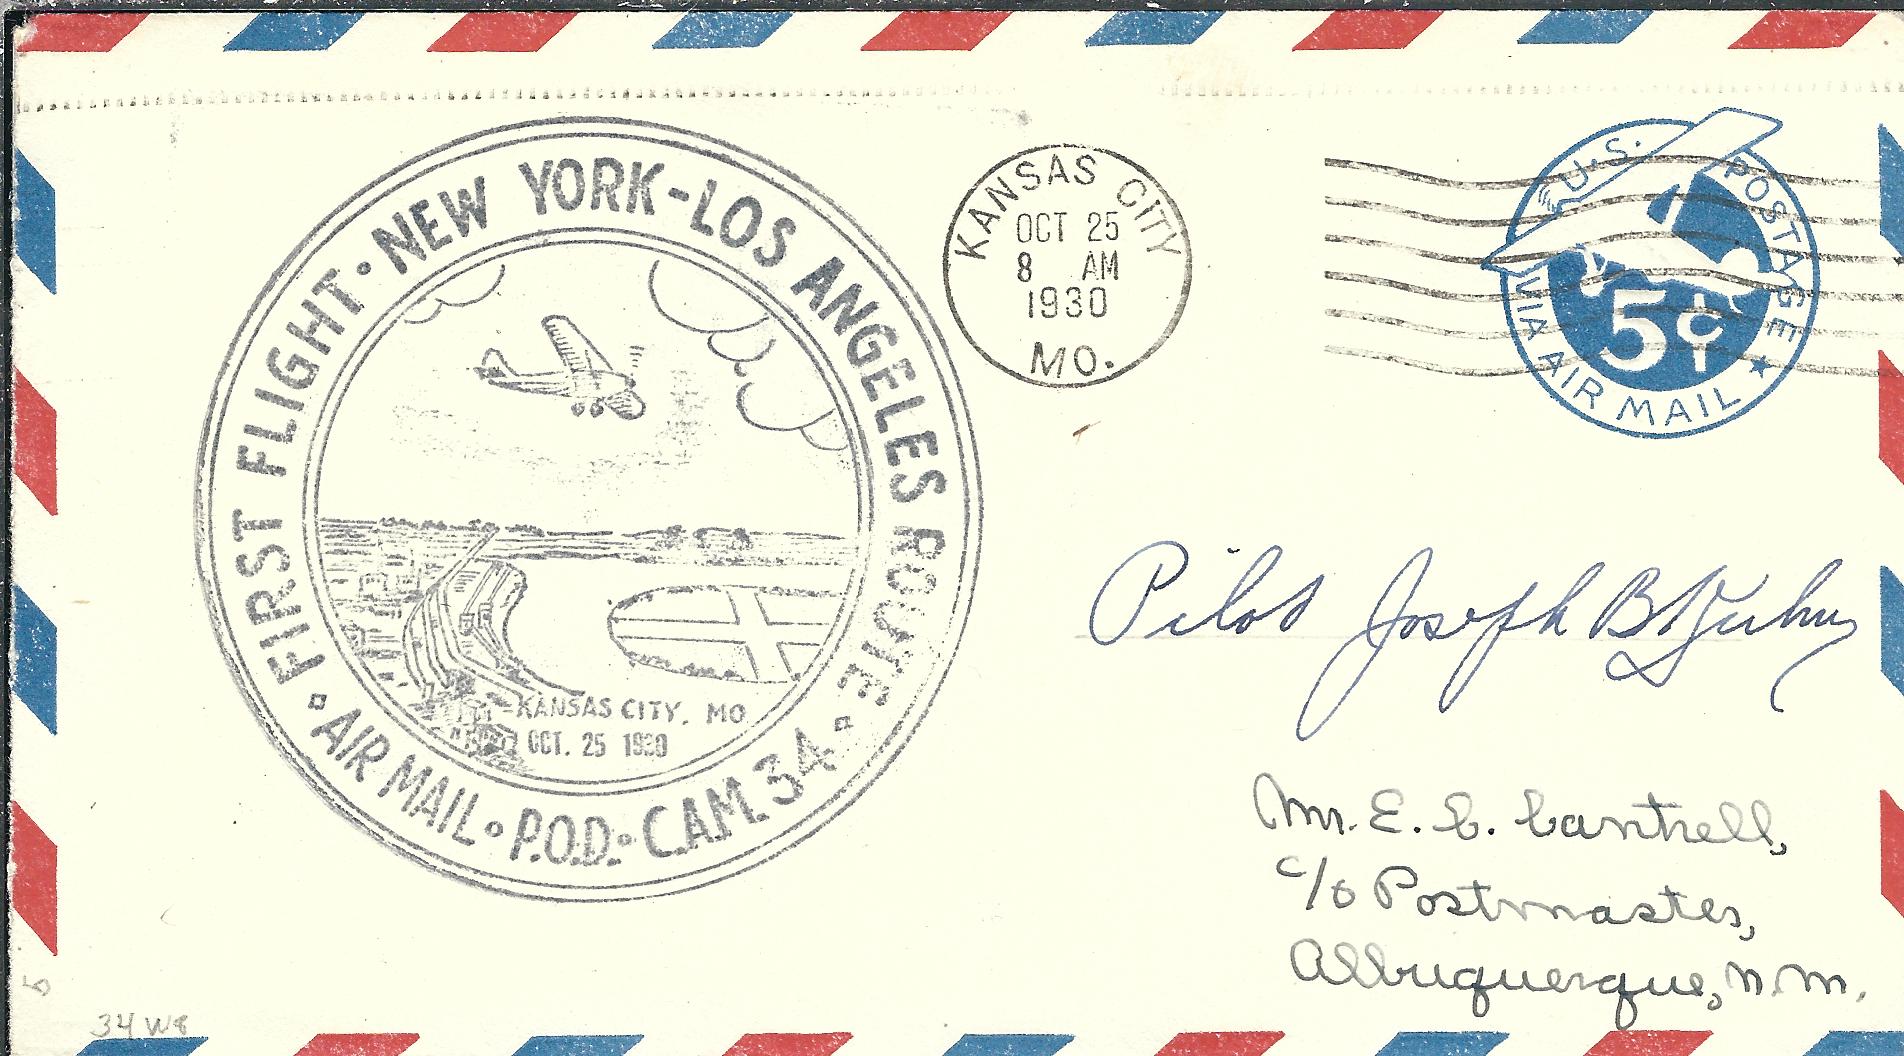 FIRST FLIGHT · NEW YORK-LOS ANGELES ROUTE
· AIR MAIL · P.O.D. · C.A.M. 34 ·
KANSAS CITY, MO
OCT. 25 1930
KANSAS CITY
OCT 25
8 AM
1930
MO.
U.S. POSTAGE
5¢
VIA AIR MAIL
Pilot Joseph B
Mr. E. C. Cantrell,
c/o Postmaster,
Albuquerque, N.M.
34 W8